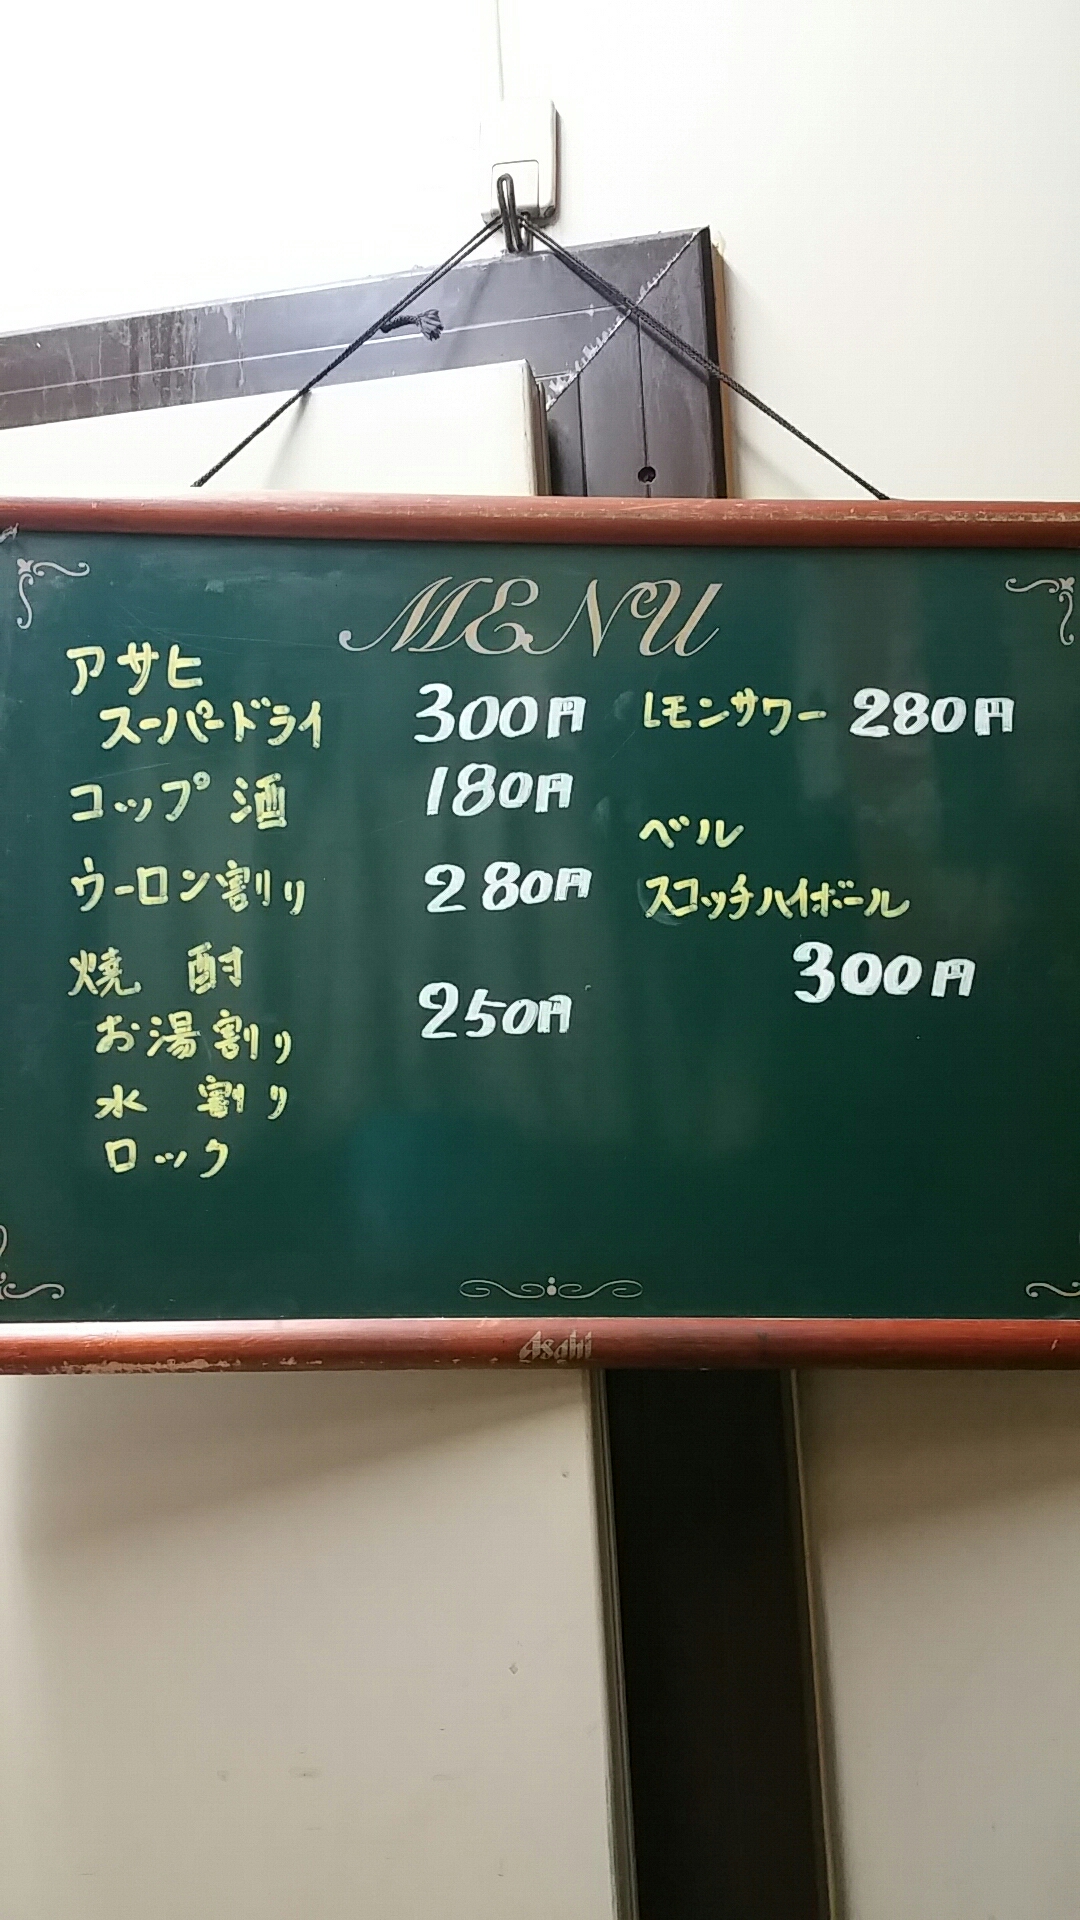 MENU
アサヒ
スーパードライ 300円
コップ酒 180円
ウーロン割り 280円
焼酎
250円
お湯割り
水割り
ロック
レモンサワー 280円
ベル
スコッチハイボール
300円
Asahi